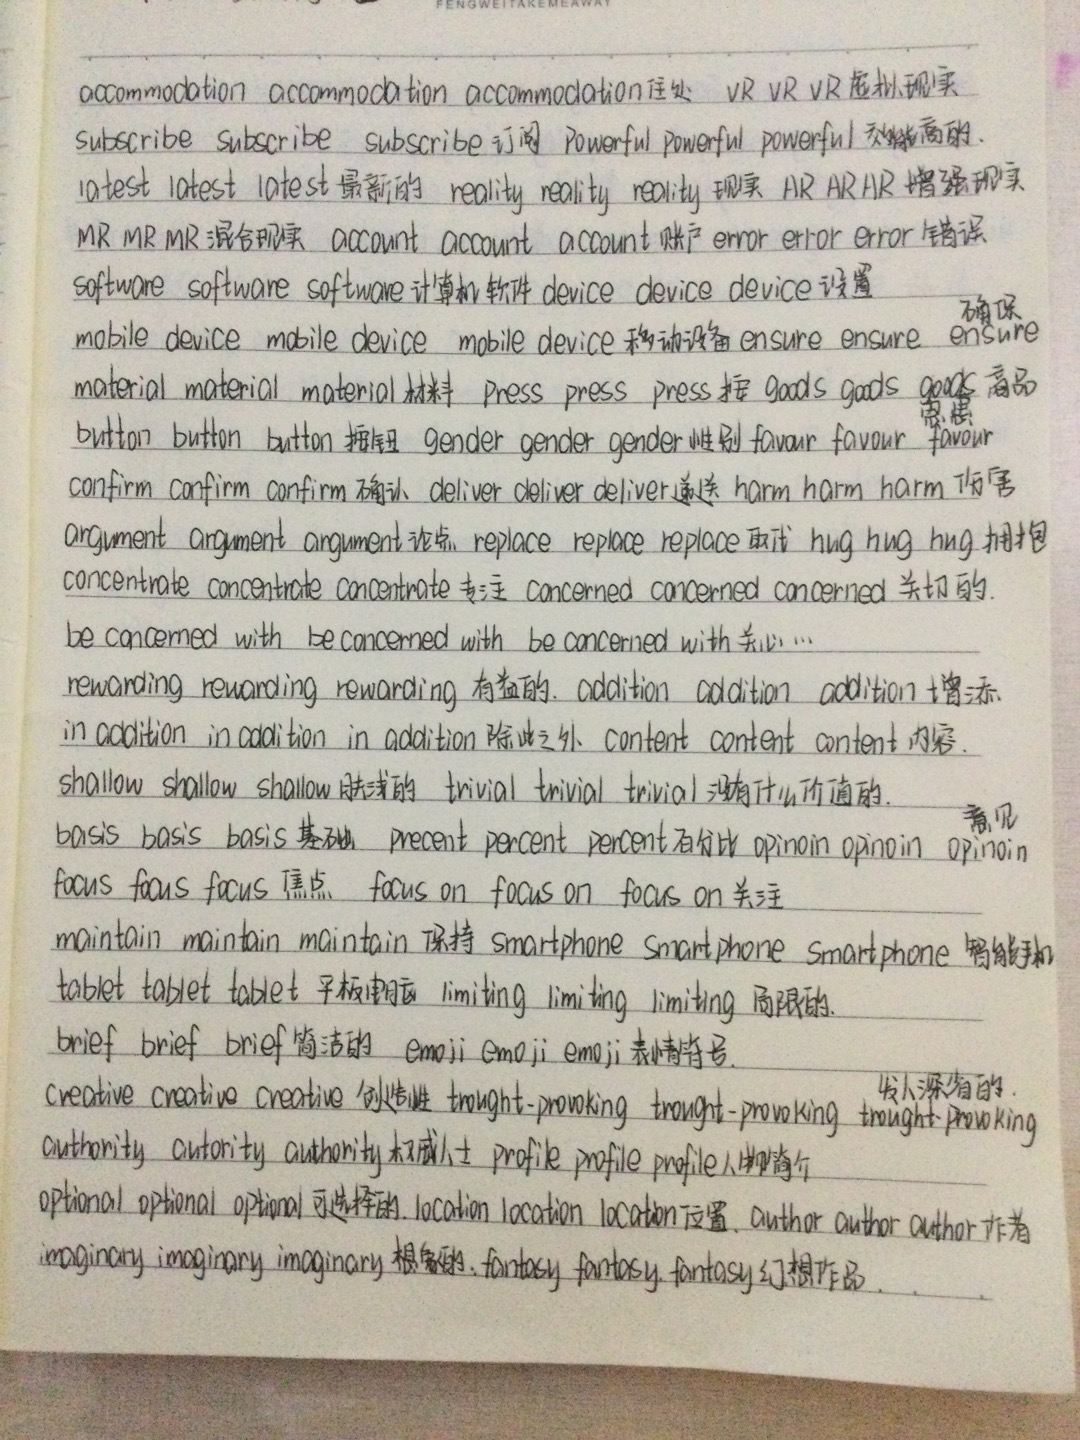 FENGWEITAKEMEAWAY
accommodation accommodation accommodation住处 VR VR VR虚拟现实
subscribe subscribe subscribe订阅 Powerful powerful powerful 效能高的.
latest latest latest最新的 reality reality reality现实 AR AR AR增强现实
MR MR MR混合现实 account account account账户 error error error错误
software software software计算机软件 device device device设置
确保
mobile device mobile device mobile device移动设备 ensure ensure ensure
material material material材料 press press press按 goods goods goods商品
恩惠
button button button按钮 gender gender gender性别 favour favour favour
confirm confirm confirm确认 deliver deliver deliver递送 harm harm harm伤害
argument argument argument论点 replace replace replace取代 hug hug hug拥抱
concentrate concentrate concentrate专注 concerned concerned concerned关切的.
be concerned with be concerned with be concerned with关心…
rewarding rewarding rewarding有益的. addition addition addition增添
in addition in addition in addition除此之外 content content content内容.
shallow shallow shallow肤浅的 trivial trivial trivial没有什么价值的.
意见
basis basis basis基础 precent percent percent百分比 opinoin opinoin opinoin
focus focus focus焦点 focus on focus on focus on关注
maintain maintain maintain保持 smartphone smartphone smartphone智能手机
tablet tablet tablet平板电脑 limiting limiting limiting局限的.
brief brief brief简洁的 emoji emoji emoji表情符号.
发人深省的.
creative creative creative创造性 trought-provoking trought-provoking trought-provoking
authority autority authority权威人士 profile profile profile人物简介
optional optional optional可选择的. location location location位置. author author author作者
imaginary imaginary imaginary想象的. fantasy fantasy. fantasy幻想作品.